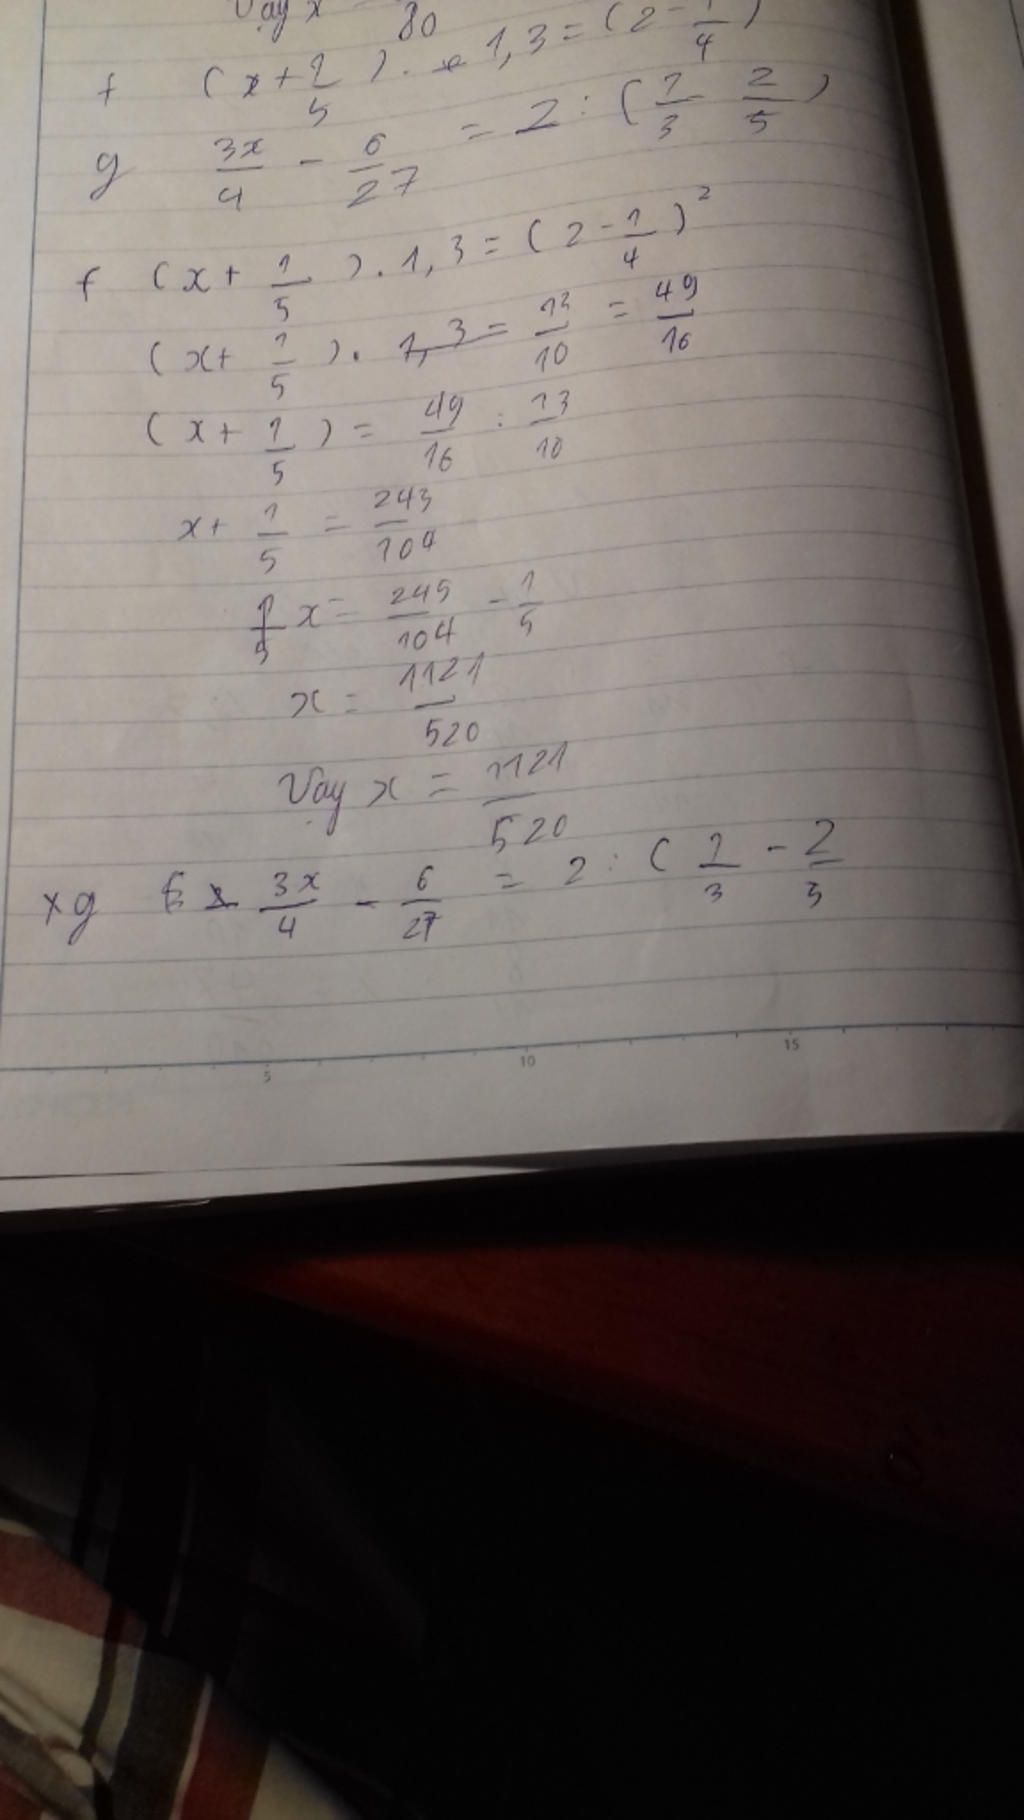 Vậy x 80
f (x + 1/5) . 1,3 = (2 - 1/4)
g 3x/4 - 6/27 = 2 : (1/3 2/5)
f (x + 1/5) . 1,3 = (2 - 1/4)²
(x + 1/5) . 1,3 = 13/10 = 49/16
(x + 1/5) = 49/16 : 13/10
x + 1/5 = 245/104
x = 245/104 - 1/5
x = 1121/520
Vậy x = 1121/520
xg 3x/4 - 6/27 = 2 : (1/3 - 2/5
5 10 15